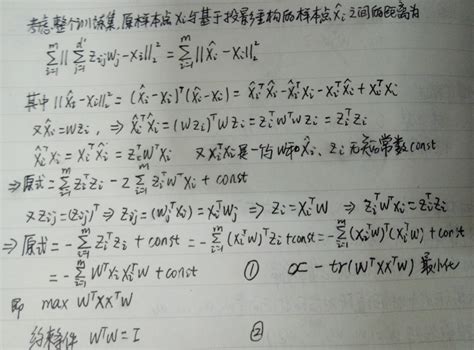 考虑整个训练集,原样本点 xᵢ 与基于投影重构的样本点 x̂ᵢ 之间的距离为
∑ᵢ₌₁ᵐ ||∑ⱼ₌₁ᵈ' zᵢⱼwⱼ - xᵢ||₂² = ∑ᵢ₌₁ᵐ ||x̂ᵢ - xᵢ||₂²
其中 ||x̂ᵢ - xᵢ||₂² = (x̂ᵢ - xᵢ)ᵀ(x̂ᵢ - xᵢ) = x̂ᵢᵀx̂ᵢ - x̂ᵢᵀxᵢ - xᵢᵀx̂ᵢ + xᵢᵀxᵢ
又 x̂ᵢ = wzᵢ, ⇒ x̂ᵢᵀx̂ᵢ = (wzᵢ)ᵀwzᵢ = zᵢᵀwᵀwzᵢ = zᵢᵀzᵢ
x̂ᵢᵀxᵢ = xᵢᵀx̂ᵢ = zᵢᵀwᵀxᵢ 又 xᵢᵀxᵢ是一与w和x̂ᵢ、zᵢ 无关的常数const
⇒原式 = ∑ᵢ₌₁ᵐ zᵢᵀzᵢ - 2∑ᵢ₌₁ᵐ zᵢᵀwᵀxᵢ + const
又 zᵢⱼ = (zᵢⱼ)ᵀ ⇒ zᵢⱼ = (wⱼᵀxᵢ) = xᵢᵀwⱼ ⇒ zᵢ = xᵢᵀw ⇒ zᵢᵀwᵀxᵢ = zᵢᵀzᵢ
⇒ 原式 = -∑ᵢ₌₁ᵐ zᵢᵀzᵢ + const = -∑ᵢ₌₁ᵐ (xᵢᵀw)ᵀzᵢ + const = -∑ᵢ₌₁ᵐ (xᵢᵀw)ᵀ(xᵢᵀw) + const
= -∑ᵢ₌₁ᵐ wᵀxᵢxᵢᵀw + const ① ∝ -tr(wᵀxxᵀw) 最小化
即 max wᵀxxᵀw
约束条件 wᵀw = I ②